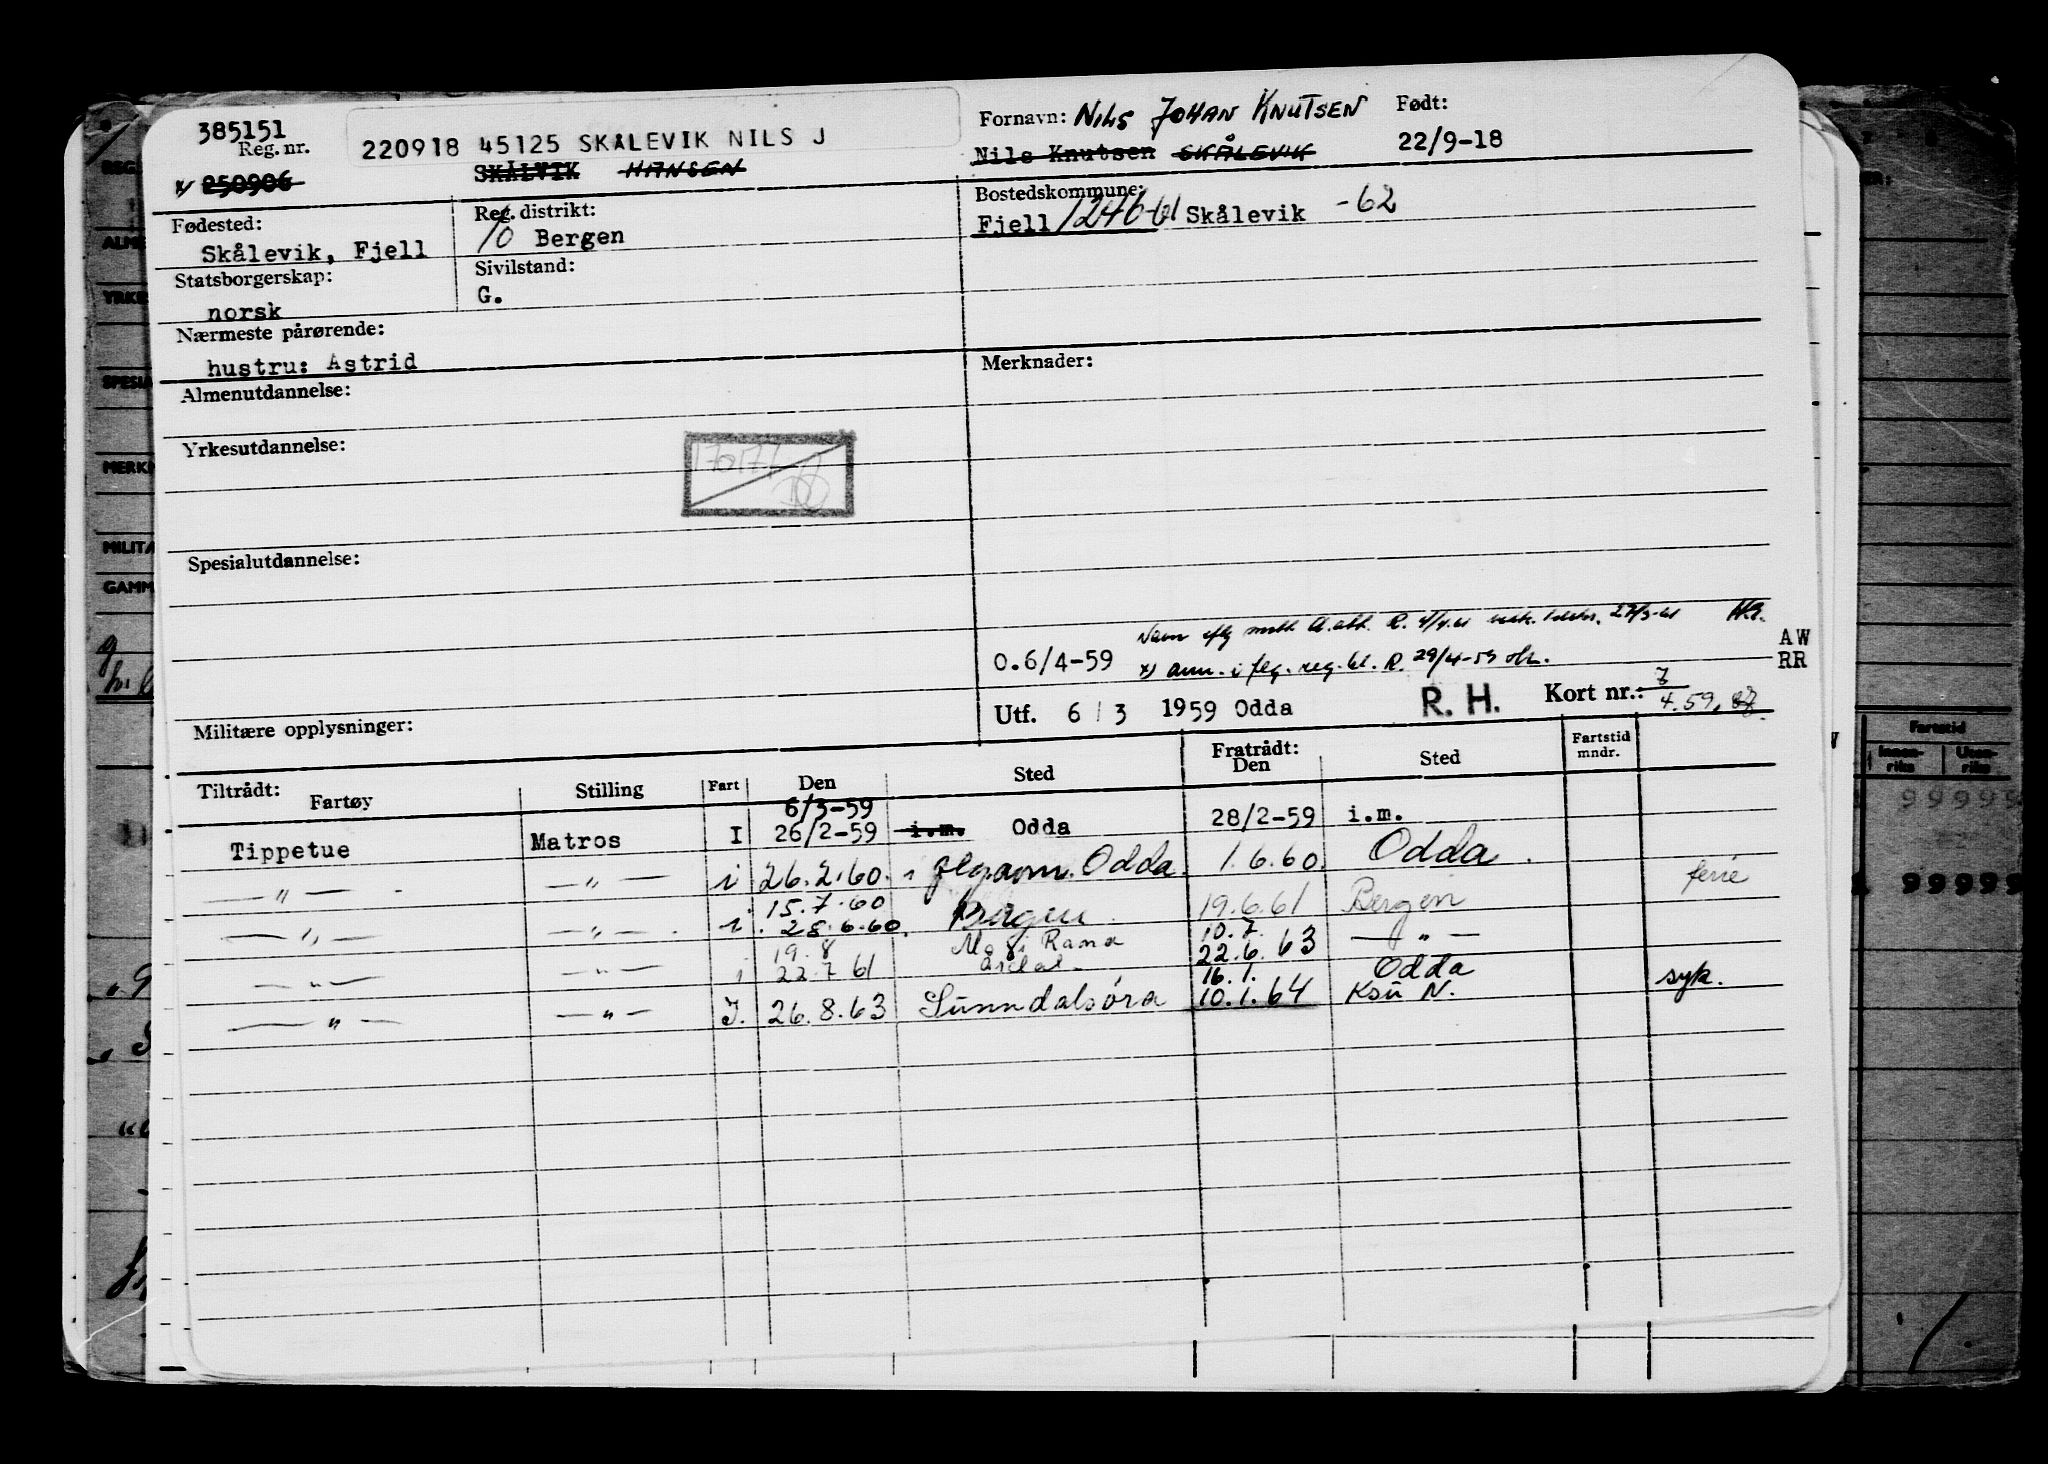 385151
Reg. nr.
x) 250906
220918 45125 SKÅLEVIK NILS J
SKÅLVIK HANSEN
Fornavn: NILS JOHAN KNUTSEN
Nils Knutsen SKÅLEVIK
Født:
22/9-18
Fødested:
Skålevik, Fjell
Reg. distrikt:
10 Bergen
Bostedskommune:
Fjell 1246-61 Skålevik -62
Statsborgerskap:
norsk
Sivilstand:
G.
Nærmeste pårørende:
hustru: Astrid
Almenutdannelse:
Merknader:
Yrkesutdannelse:
Spesialutdannelse:
Navn iflg R. 4/4.61 27/3-61
O.6/4-59 x) ann. i flg. reg. R. 29/4-59
AW
RR
Militære opplysninger:
Utf. 6/3 1959 Odda R. H. Kort nr.: 7
4.59.
Tiltrådt: Fartøy Stilling Fart Den Sted Fratrådt: Den Sted Fartstid mndr.
6/3-59
Tippetue Matros I 26/2-59 i.m. Odda 28/2-59 i.m.
— " — — " — i 26.2.60. Odda 1.6.60. Odda.
15.7.60 ferie
— " — — " — i 28.6.60. Bergen 19.6.61 Bergen
19.8 Mo i Rana 10.7.
— " — — " — i 22.7 61 22.6.63 — " —
16.1. Odda
— " — — " — I. 26.8.63 Sunndalsöra 10.1.64 Ksu N. syk.
Fartstid
Innen-
riks
Uten-
riks
99999
99999